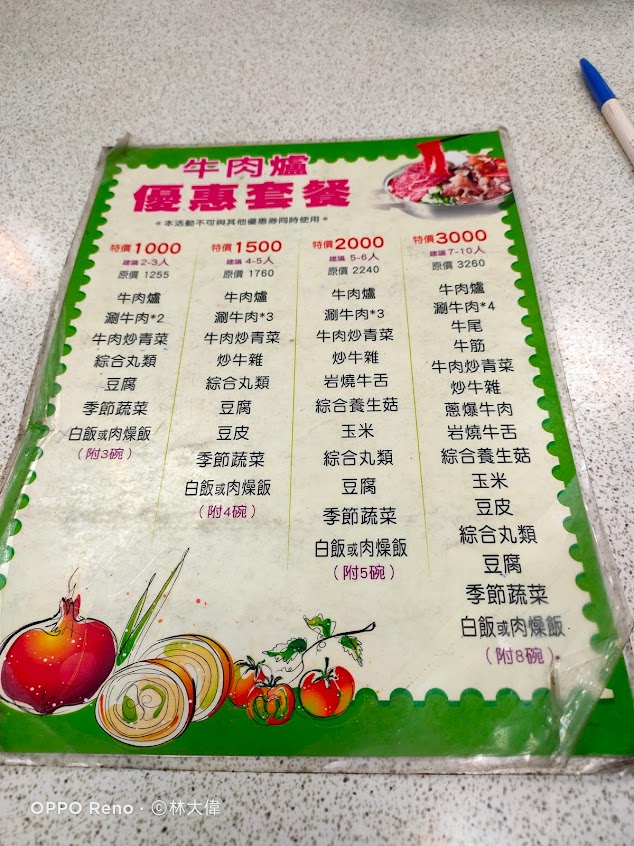 牛肉爐
優惠套餐
＊本活動不可與其他優惠券同時使用＊
特價1000
建議2-3人
原價 1255
牛肉爐
涮牛肉*2
牛肉炒青菜
綜合丸類
豆腐
季節蔬菜
白飯或肉燥飯
（附3碗）
特價1500
建議 4-5人
原價 1760
牛肉爐
涮牛肉*3
牛肉炒青菜
炒牛雜
綜合丸類
豆腐
豆皮
季節蔬菜
白飯或肉燥飯
（附4碗）
特價2000
建議 5-6人
原價 2240
牛肉爐
涮牛肉*3
牛肉炒青菜
炒牛雜
岩燒牛舌
綜合養生菇
玉米
綜合丸類
豆腐
季節蔬菜
白飯或肉燥飯
（附5碗）
特價3000
建議7-10人
原價 3260
牛肉爐
涮牛肉*4
牛尾
牛筋
牛肉炒青菜
炒牛雜
蔥爆牛肉
岩燒牛舌
綜合養生菇
玉米
豆皮
綜合丸類
豆腐
季節蔬菜
白飯或肉燥飯
（附8碗）
OPPO Reno · ©林大偉